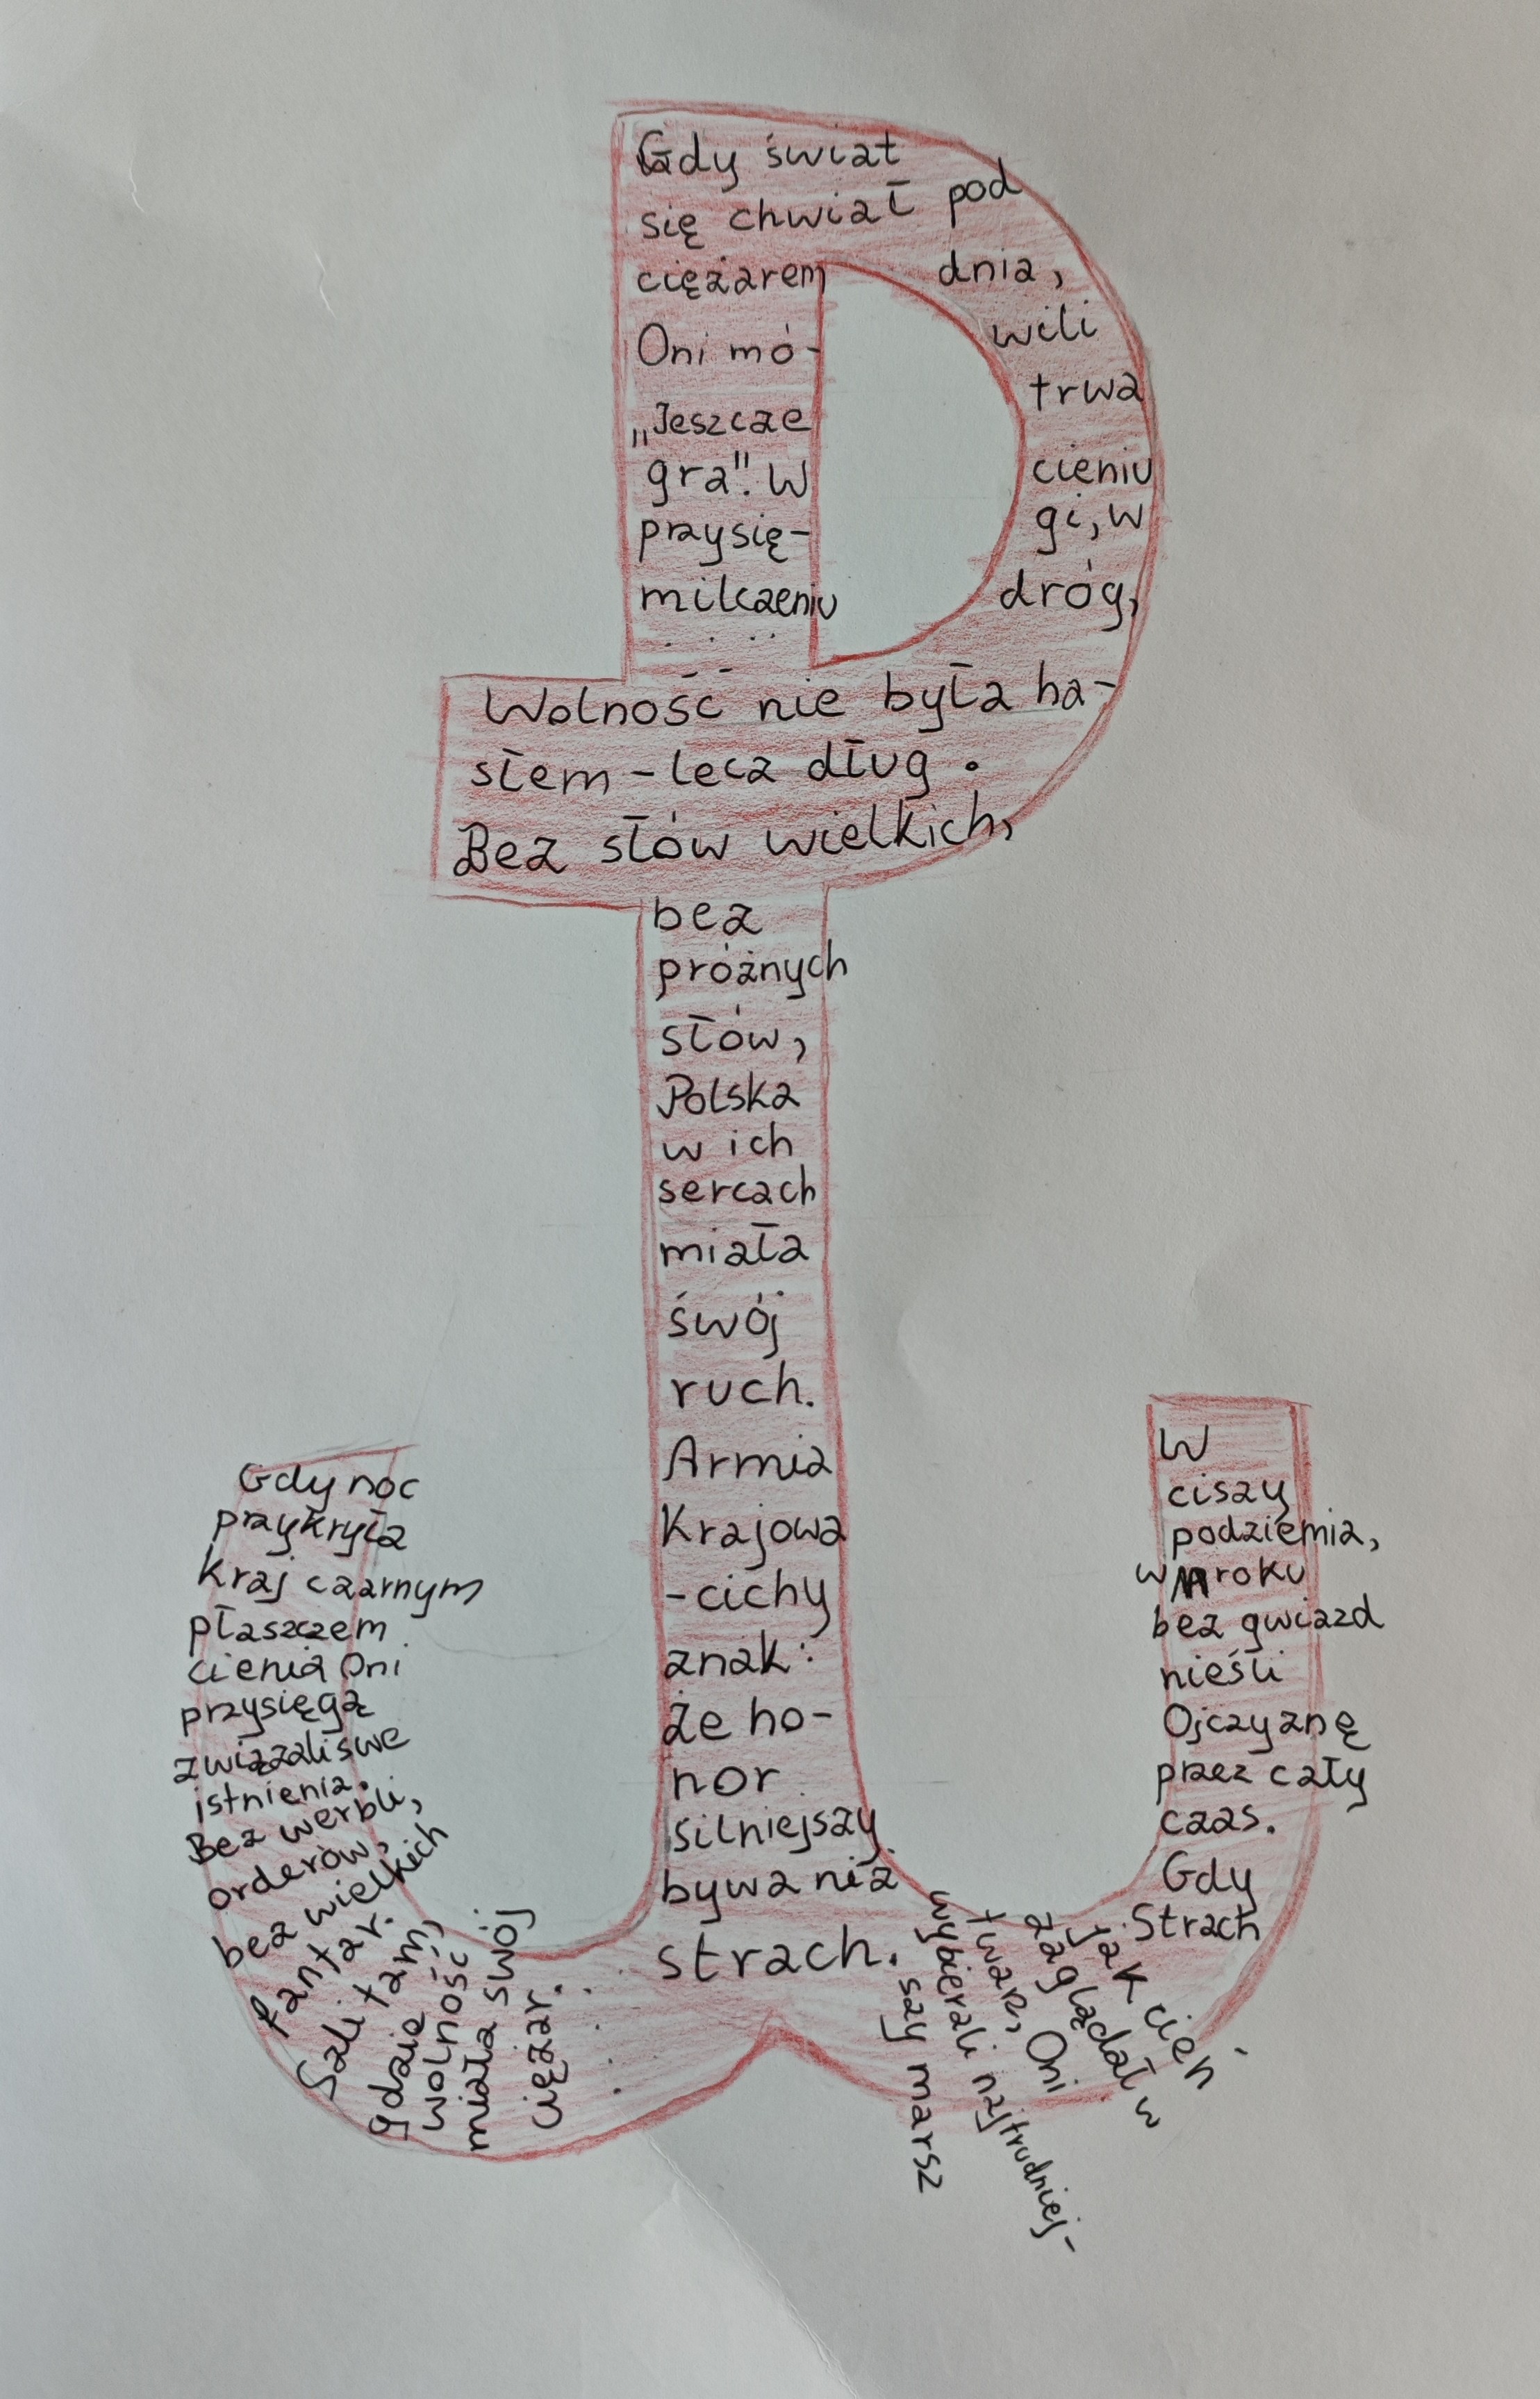 Gdy świat
się chwiał pod
ciężarem dnia,
Oni mó- wili
„Jeszcze trwa
gra". W cieniu
przysię- gi, w
milczeniu dróg,
Wolność nie była ha-
słem - lecz dług.
Bez słów wielkich,
bez
próżnych
słów,
Polska
w ich
sercach
miała
śwój
ruch.
Armia
Krajowa
- cichy
znak:
że ho-
nor
silniejszy
bywa niż
strach.
Gdy noc
przykryła
kraj czarnym
płaszczem
cienia Oni
przysięgą
związali swe
istnienia.
Bez werbli,
orderów,
bez wielkich
fanfar.
Szli tam,
gdzie
wolność
miała swój
ciężar.
W
ciszy
podziemia,
w mroku
bez gwiazd
nieśli
Ojczyznę
przez cały
czas.
Gdy
Strach
jak cień
zaglądał w
twarz, Oni
wybierali najtrudniej-
szy marsz